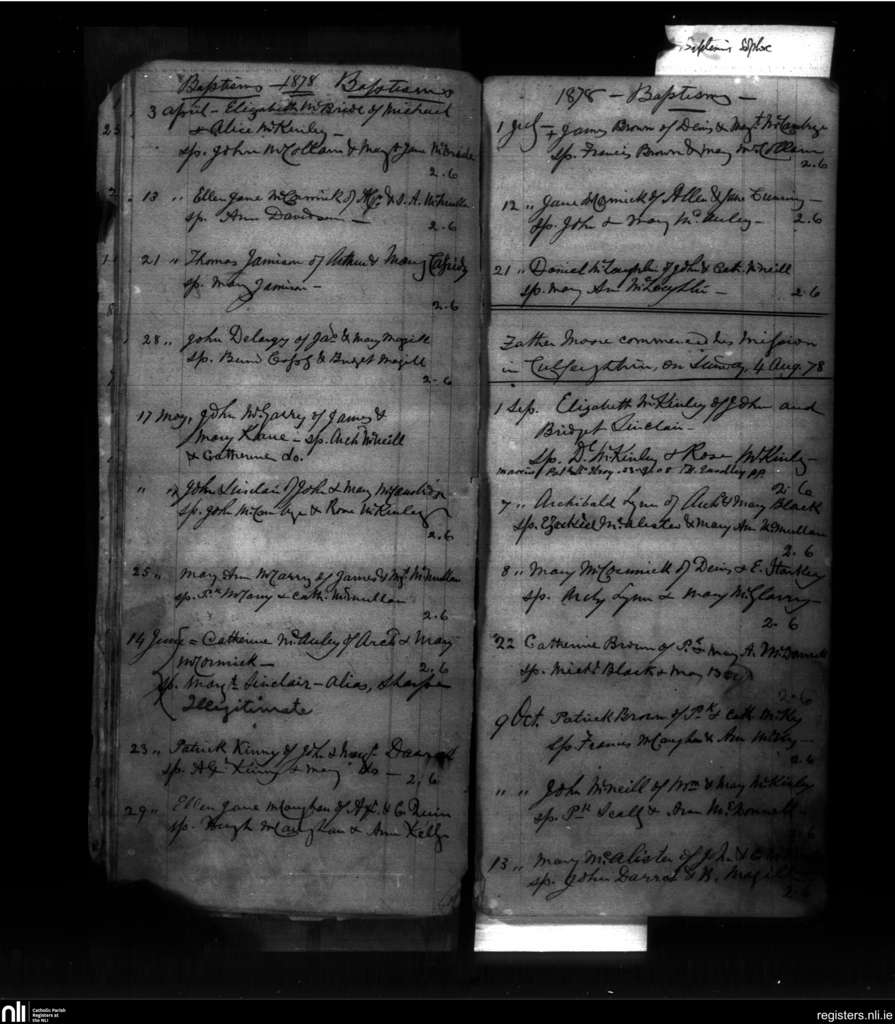 Baptisms 1878 Baptisms
3 April - Elizabeth McBride of Michael
& Alice McKinley -
sp. John McCollam & Margt Jane
2.6
13 " Ellen Jane McCormick of & S. A. McMullan
sp. Ann Davidson -
2.6
21 " Thomas Jamison of Arthur & Mary Cassidy
sp. Mary Jamison -
2.6
28 " John Delargy of Jas & Mary Magill
sp. & Bridget Magill
2-6
17 May, John McGarry of James &
Mary Kane - sp. Archd McNeill
& Catherine do.
" " John Sinclair of John & Mary
sp. John McCambridge & Rose McKinley
2.6
25 " Mary Ann McCarry of James & Mgt McMullan
sp. Pk McCarry & Cath. McMullan
2.6
14 June = Catherine McAuley of Archd & Mary
McCormick -
2.6
sp. Margt Sinclair - Alias, Sharpe
Illegitimate
23 " Patrick Kinny of John & Margt
sp. Alexr Kinny & Mary do - 2.6
29 " Ellen Jane McCaughan of & C. Quinn
sp. Hugh McCaughan & Ann Kelly
Baptisms
1878 - Baptisms -
1 July - + James Brown of Denis & Magt McCambridge
sp. Francis Brown & Mary McCollam
2.6
12 " Jane McCormick of Allen & Jane
sp. John & Mary McAuley - 2.6
21 " Daniel McLaughlin of John & Cath. McNeill
sp. Mary Ann McLaughlin - 2.6
Father Moore commenced his mission
in Culfeightrin, on Sunday, 4 Aug. 78
1 Sep. Elizabeth McKinley of John and
Bridget Sinclair -
sp. Dl McKinley & Rose McKinley -
married
2.6
7 " Archibald Lynn of Archd & Mary Black
sp. Ezechiel McAlister & Mary Ann McMullan
2.6
8 " Mary McCormick of Denis & E.
sp. Archy Lynn & Mary McGlarry
2.6
22 Catherine Brown of Pk & Mary A. McDonnell
sp. Michl Black & Mary
2.6
9 Oct. Patrick Brown of Pk & Cath.
sp. Francis McCaughan & Ann
2.6
" " John McNeill of Wm & Mary McKinley
sp. Pk Scally & Ann McDonnell -
2.6
13 " Mary McAlister of John &
sp. John Darragh & Magill
2.6
nli
Catholic Parish
Registers at
the NLI
registers.nli.ie